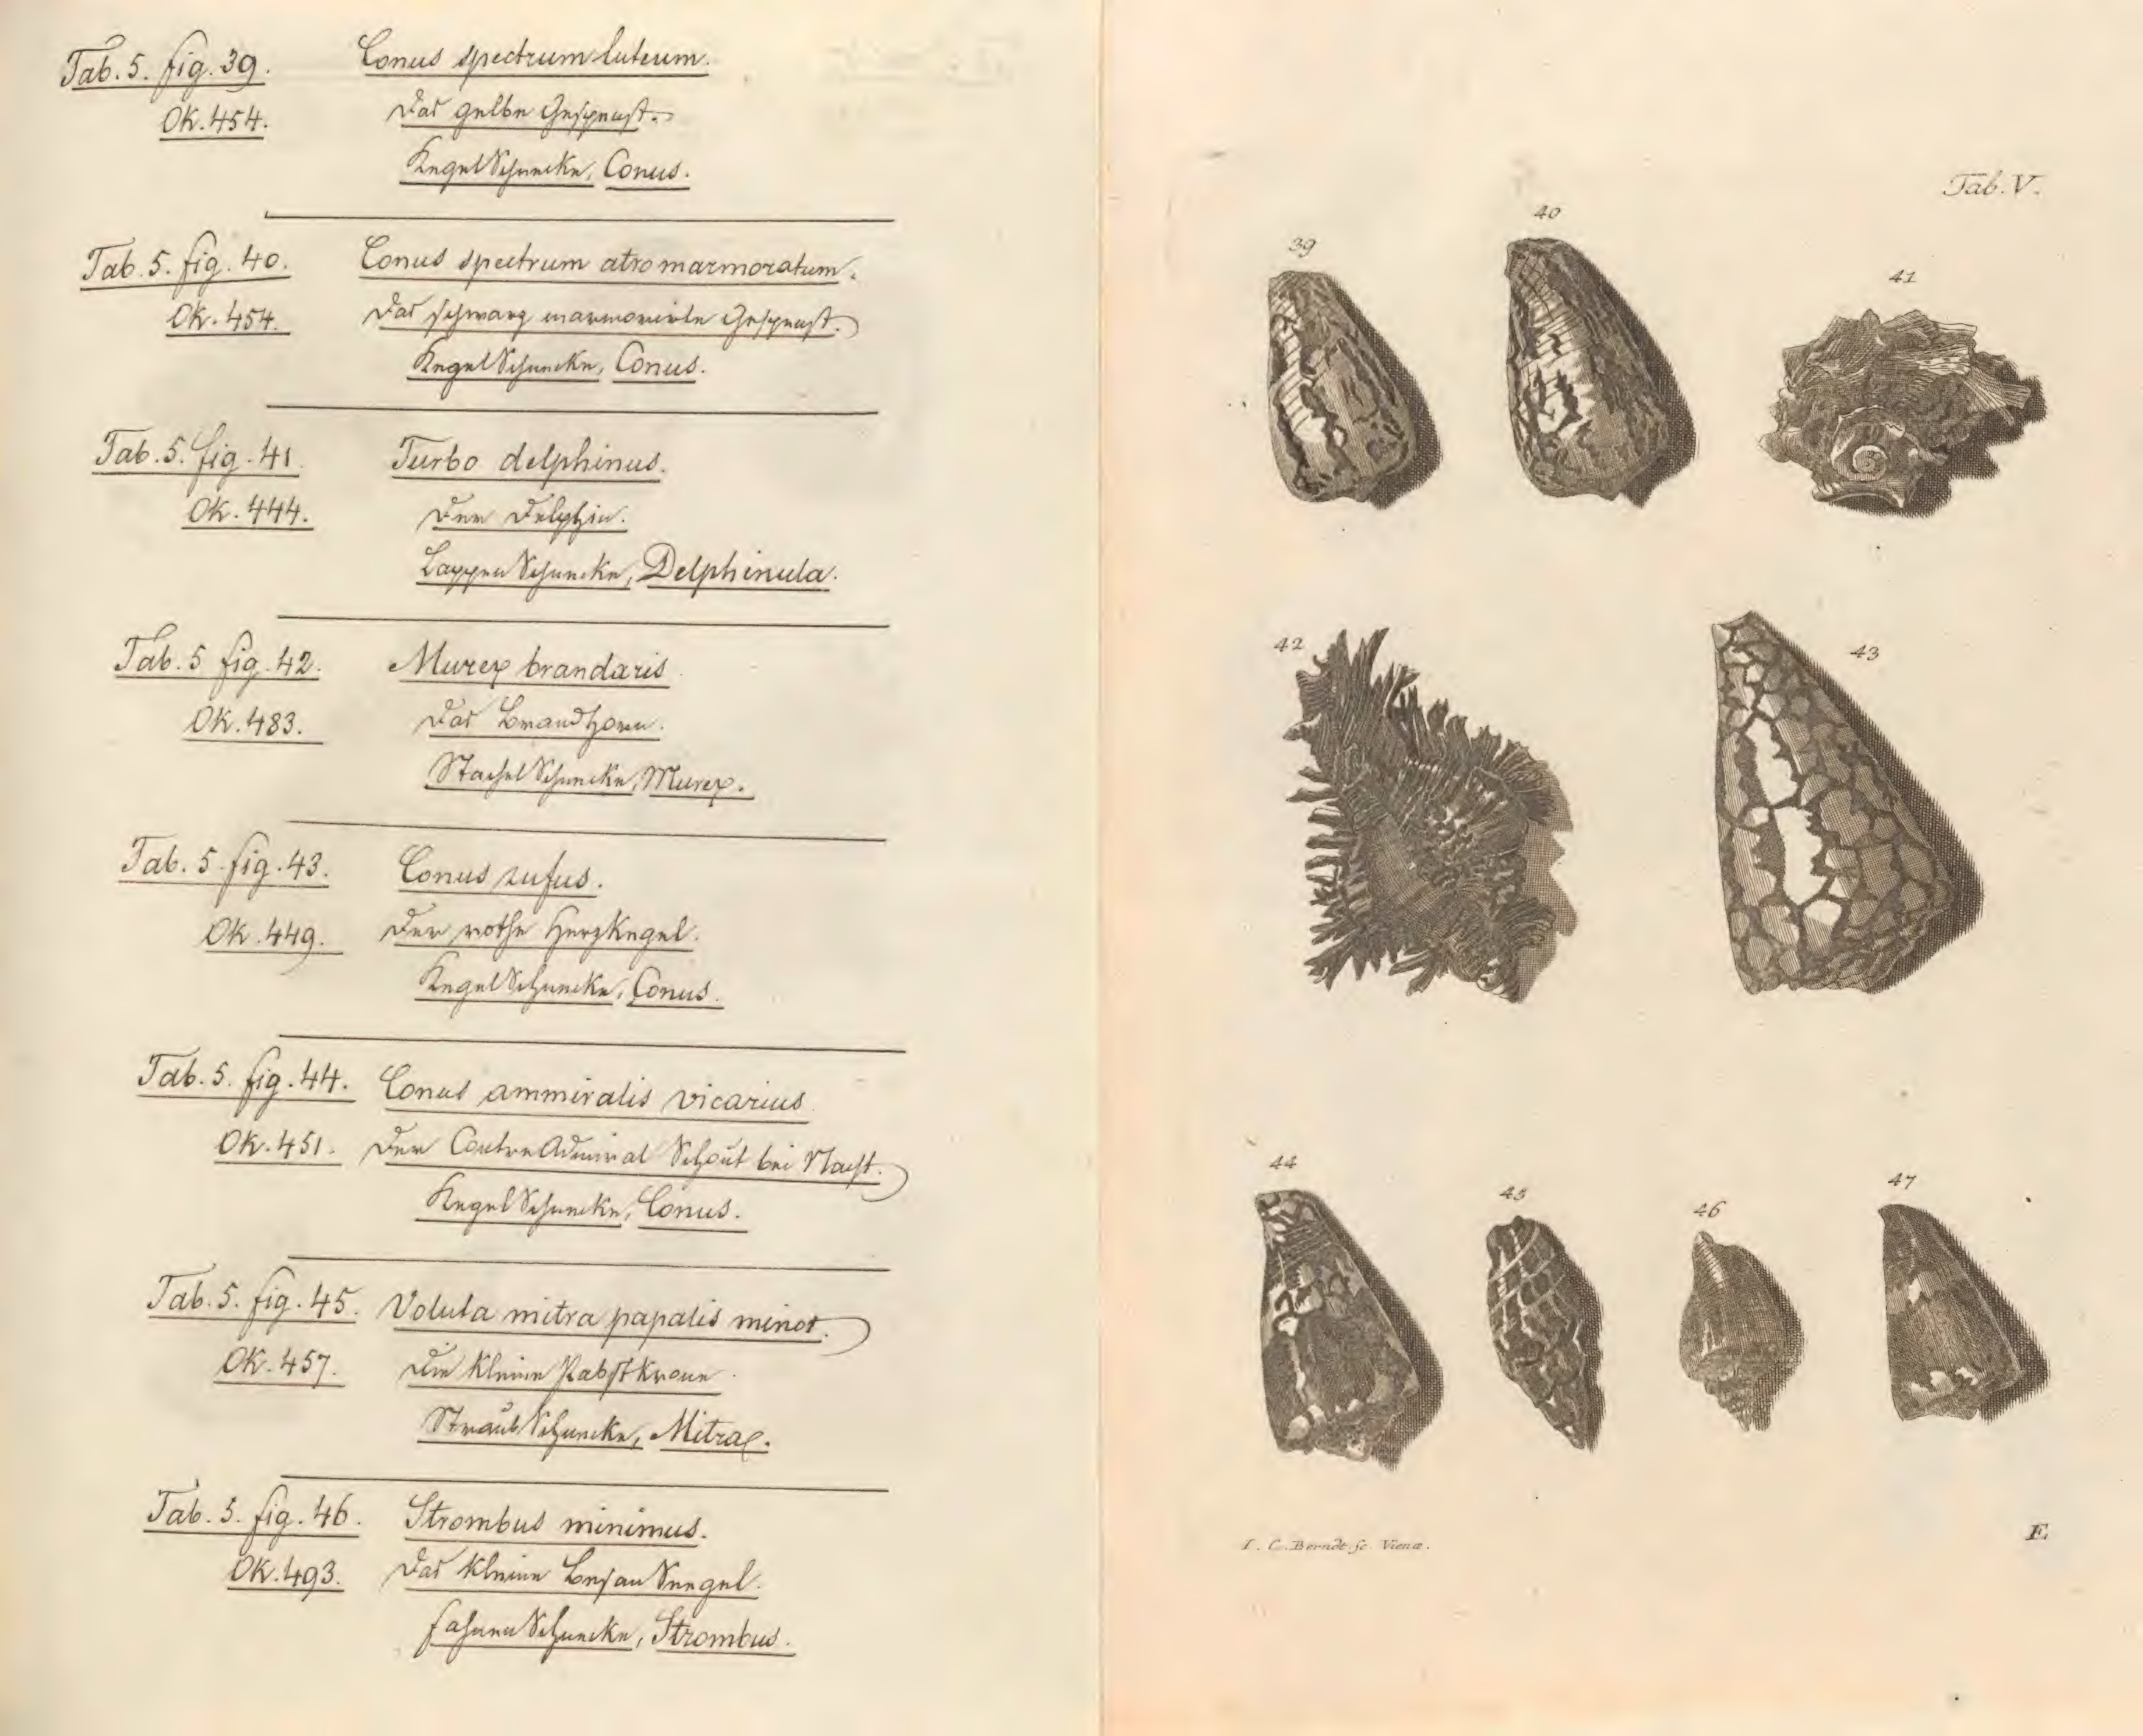 Tab. 5. fig. 39. Conus spectrum luteum.
OK. 454. Das gelbe Gespenst.
KegelSchnecke, Conus.
Tab. 5. fig. 40. Conus spectrum atromarmoratum.
OK. 454. Das schwarz marmorirte Gespenst.
KegelSchnecke, Conus.
Tab. 5. fig. 41. Turbo delphinus.
OK. 444. Der Delphin.
LappenSchnecke, Delphinula.
Tab. 5 fig. 42. Murex brandaris
OK. 483. Das Brandhorn.
StachelSchnecke, Murex.
Tab. 5 fig. 43. Conus rufus.
OK. 449. Der rothe HerzKegel.
KegelSchnecke, Conus.
Tab. 5. fig. 44. Conus ammiralis vicarius.
OK. 451. Der ContreAdmiral Schout bei Nacht.
KegelSchnecke, Conus.
Tab. 5. fig. 45. Voluta mitra papalis minor.
OK. 457. Die kleine PabstKrone.
StraubSchnecke, Mitra.
Tab. 5. fig. 46. Strombus minimus.
OK. 493. Das kleine BesanSeegel.
Schnecke, Strombus.
Tab. V.
39
40
41
42
43
44
45
46
47
I. C. Berndt. sc Vienæ.
E